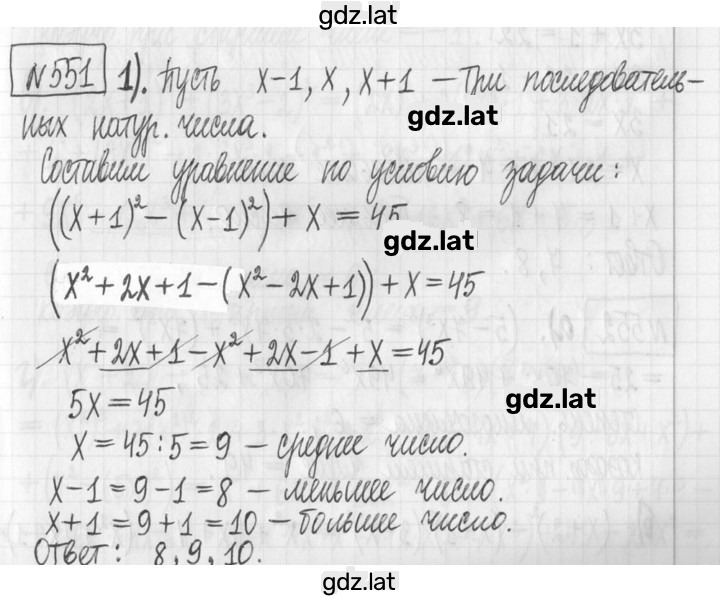 gdz.lat
№551 1). Пусть x-1, x, x+1 — три последователь-
gdz.lat
ных натур. числа.
Составим уравнение по условию задачи:
((x+1)²-(x-1)²)+x=45
gdz.lat
(x²+2x+1-(x²-2x+1))+x=45
x²+2x+1-x²+2x-1+x=45
5x=45
gdz.lat
x=45:5=9 – среднее число.
x-1=9-1=8 – меньшее число.
x+1=9+1=10 – большее число.
Ответ: 8, 9, 10.
gdz.lat